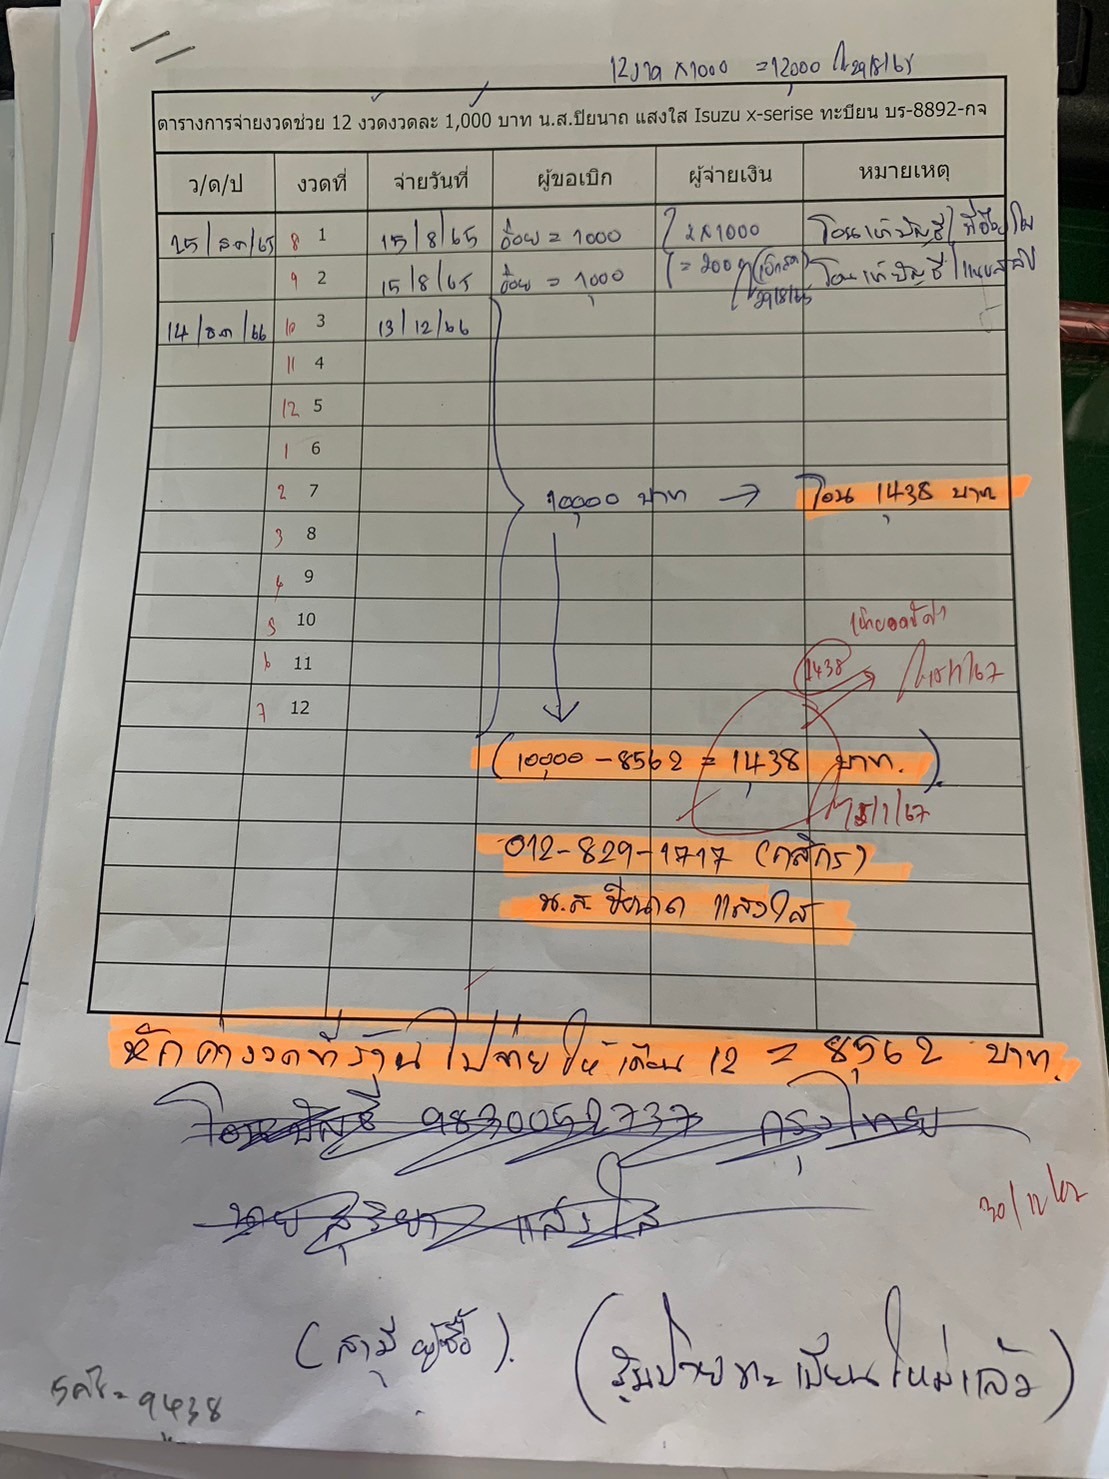 12งวด x1000 =12,000 29/8/65
ตารางการจ่ายงวดช่วย 12 งวดงวดละ 1,000 บาท น.ส.ปิยนาถ แสงใส Isuzu x-serise ทะบียน บร-8892-กจ
ว/ด/ป งวดที่ จ่ายวันที่ ผู้ขอเบิก ผู้จ่ายเงิน หมายเหตุ
15/สค/65 8 1 15/8/65 อ้อย = 1000 2x1000 โอนเข้าบัญชี
9 2 15/8/65 อ้อย = 1,000 = 2000 โอนเข้าบัญชี
29/8/65
14/ธค/66 10 3 13/12/66
11 4
12 5
1 6
2 7 10,000 บาท → โอน 1,438 บาท
3 8
4 9
5 10
6 11 1438 15/1/67
7 12
(10,000 - 8562 = 1,438 บาท.)
15/1/67
012-829-1717 (กสิกร)
น.ส ปิยนาถ แสงใส
หักค่างวดที่ร้านไปจ่ายให้เดือน 12 = 8,562 บาท.
โอนบัญชี 9830052737 กรุงไทย
นาย สุริยา แสงใส
(สามี ผู้ซื้อ). (รูปป้ายทะเบียนใหม่แล้ว)
= 9438